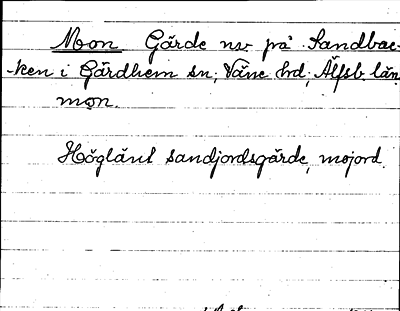 Mon Gärde nv på Sandbac-
-ken i Gärdhem sn; Väne hd; Älfsb. län
mon.
Högländ sandjordsgärde, mojord.